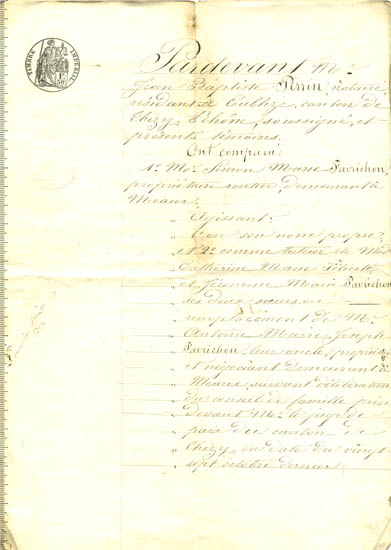 TIMBRE IMPÉRIAL
1F
50C
Pardevant Me
Jean Baptiste Perrin, notaire,
résidant à Cublize, canton de
Thizy, Rhône, soussigné, et
présents témoins.
Ont comparu
1° Mr Simon Marie Favrichon,
propriétaire rentier, demeurant à
Meaux.
" Agissant:
" 1° en son nom propre;
" et 2° comme tuteur de Melles
" Catherine Marie
" et Jéronime Marie Favrichon
" ses deux sœurs, en
" remplacement de Mr
" Antoine Marie Joseph
" Favrichon, leur oncle, propriétaire
" et négociant demeurant à
" Meaux, suivant délibération
" du conseil de famille prise
" devant Mr le juge de
" paix du canton de
" Thizy, en date du vingt
" sept octobre dernier;